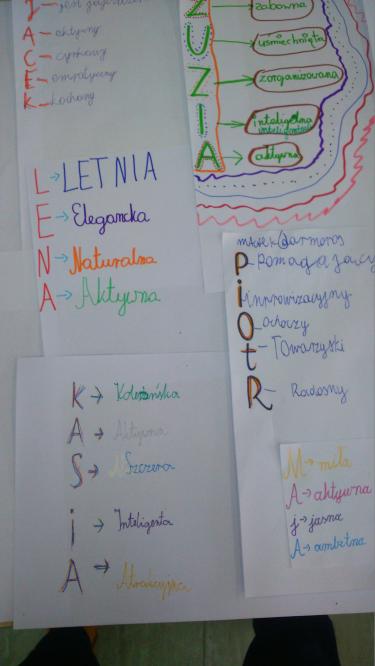 J → jest
A → aktywny
C →
E → empatyczny
K → kochany
Z → zabawna
U → uśmiechnięta
Z → zorganizowana
I → inteligentna
A → aktywna
L → LETNIA
E → Elegancka
N → Naturalna
A → Aktywna
P - pomagający
i Improwizacyjny
O - ochoczy
t - Towarzyski
R - Radosny
K → Koleżańska
A → Aktywna
S → Szczera
i → Inteligenta
A → Atrakcyjna
M → miła
A → aktywna
j → jasna
A → ambitna